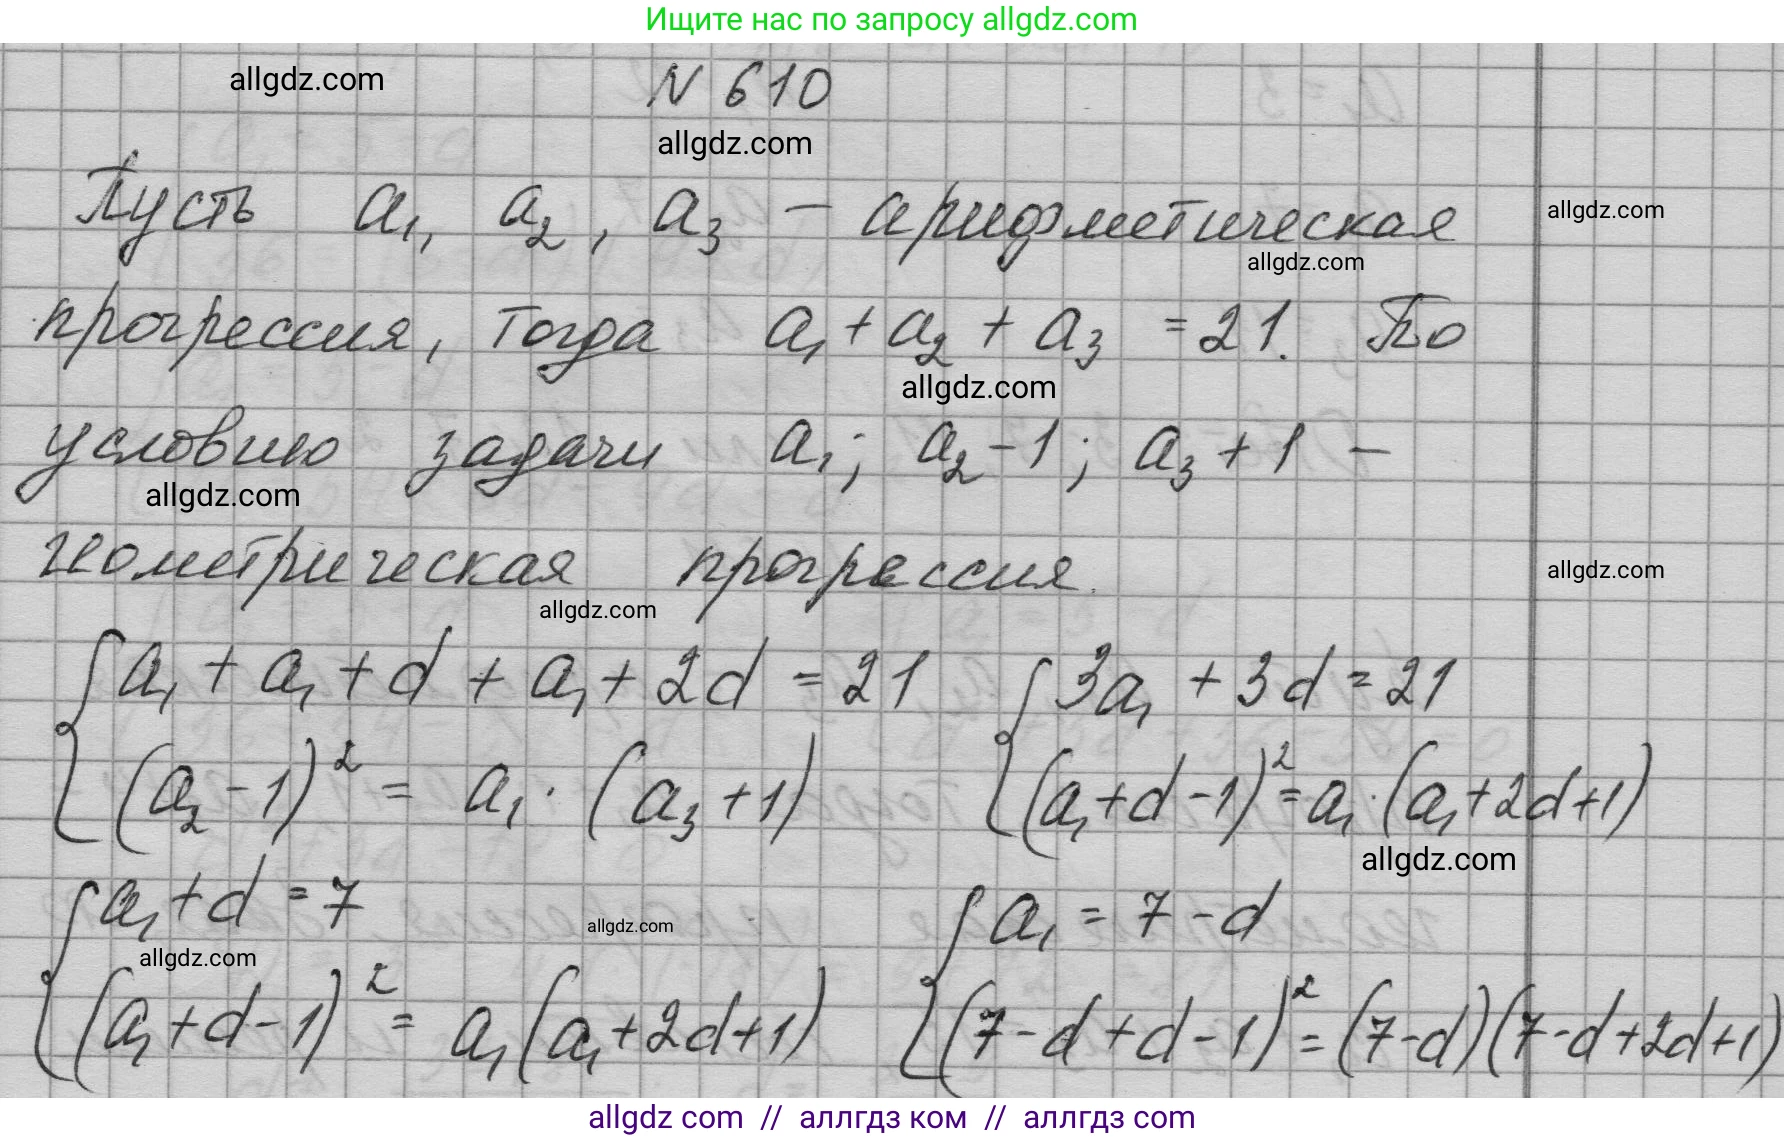 Ищите нас по запросу allgdz.com
allgdz.com
N 610
allgdz.com
Пусть a₁, a₂, a₃ – арифметическая
allgdz.com
allgdz.com
прогрессия, тогда a₁ + a₂ + a₃ = 21. По
allgdz.com
условию задачи a₁; a₂ - 1; a₃ + 1 –
allgdz.com
геометрическая прогрессия.
allgdz.com
allgdz.com
{ a₁ + a₁ + d + a₁ + 2d = 21 { 3a₁ + 3d = 21
(a₂ - 1)² = a₁ · (a₃ + 1) (a₁ + d - 1)² = a₁ · (a₁ + 2d + 1)
allgdz.com
{ a₁ + d = 7 { a₁ = 7 - d
allgdz.com
allgdz.com
(a₁ + d - 1)² = a₁ (a₁ + 2d + 1) (7 - d + d - 1)² = (7 - d)(7 - d + 2d + 1)
allgdz com // аллгдз ком // аллгдз com